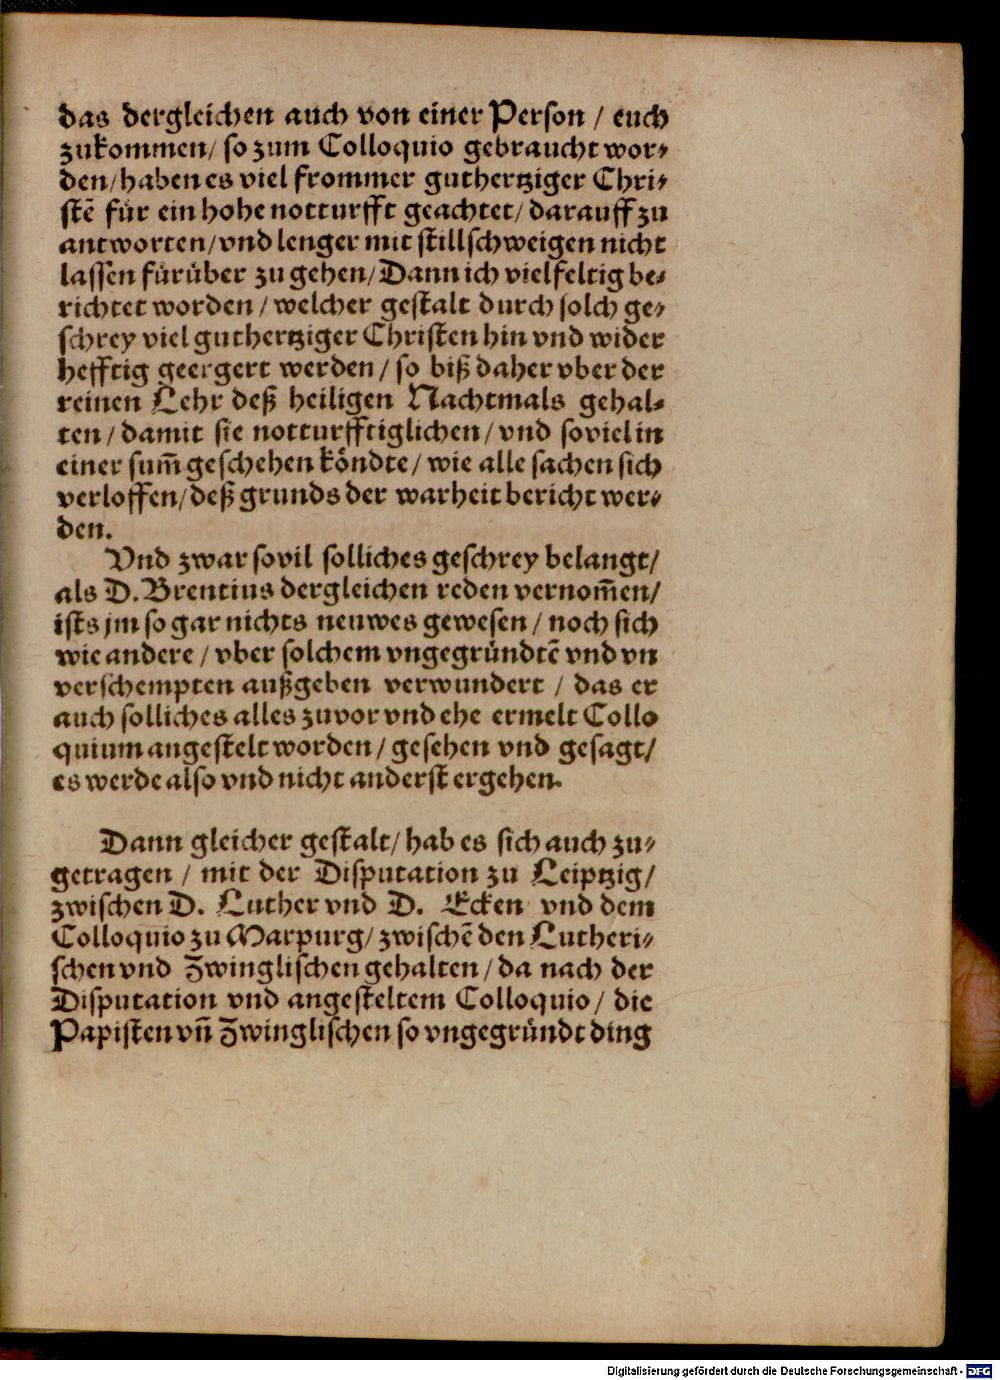 das dergleichen auch von einer Person / euch
zukommen / so zum Colloquio gebraucht wor⸗
den / haben es viel frommer guthertziger Chri⸗
stẽ für ein hohe notturfft geachtet / darauff zu
antworten / vnd lenger mit stillschweigen nicht
lassen fürüber zu gehen / Dann ich vielfeltig be⸗
richtet worden / welcher gestalt durch solch ge⸗
schrey viel guthertziger Christen hin vnd wider
hefftig geergert werden / so biß daher vber der
reinen Lehr deß heiligen Nachtmals gehal⸗
ten / damit sie notturfftiglichen / vnd soviel in
einer sum̃ geschehen köndte / wie alle sachen sich
verloffen / deß grunds der warheit bericht wer⸗
den.
Vnd zwar sovil solliches geschrey belangt /
als D. Brentius dergleichen reden vernom̃en /
ists jm so gar nichts neuwes gewesen / noch sich
wie andere / vber solchem vngegründtẽ vnd vn
verschempten außgeben verwundert / das er
auch solliches alles zuvor vnd ehe ermelt Collo
quium angestelt worden / gesehen vnd gesagt /
es werde also vnd nicht anderst ergehen.
Dann gleicher gestalt / hab es sich auch zu⸗
getragen / mit der Disputation zu Leiptzig /
zwischen D. Luther vnd D. Ecken vnd dem
Colloquio zu Marpurg / zwischẽ den Lutheri⸗
schen vnd Zwinglischen gehalten / da nach der
Disputation vnd angesteltem Colloquio / die
Papisten vñ Zwinglischen so vngegründt ding
Digitalisierung gefördert durch die Deutsche Forschungsgemeinschaft - DFG